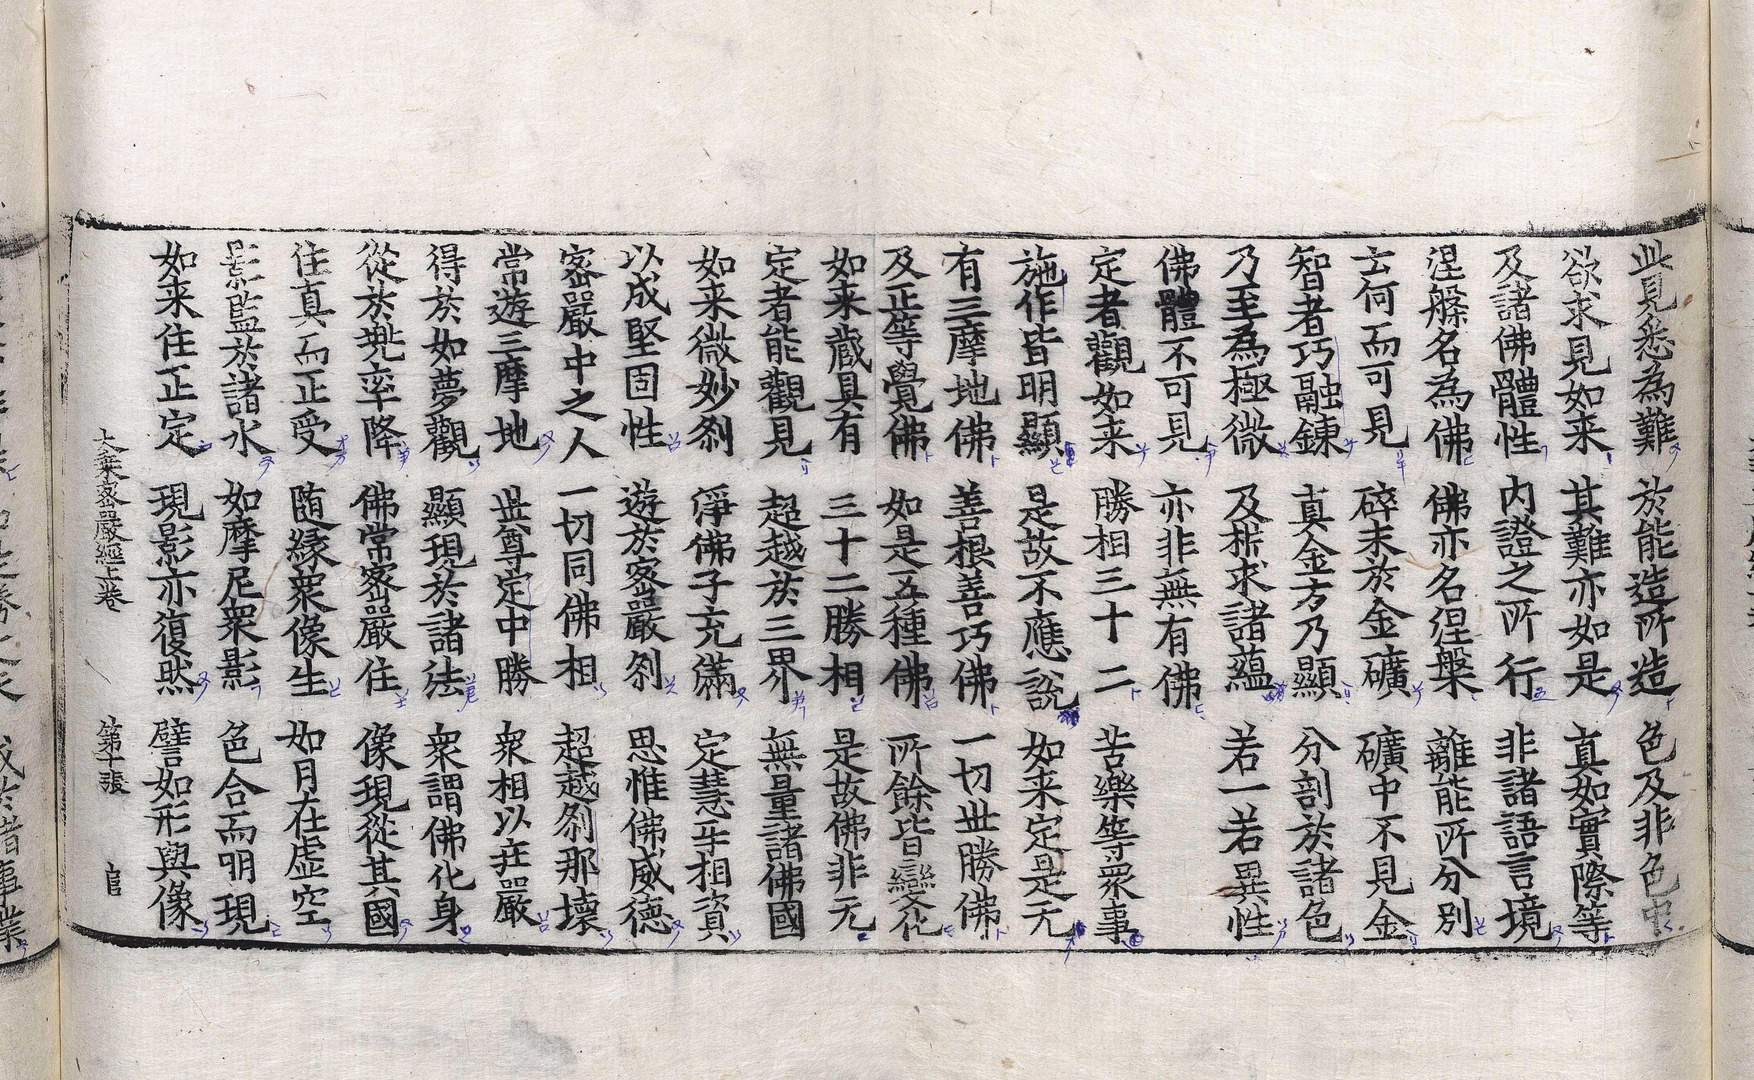 此見悉為難 於能造所造 色及非色中
欲求見如来 其難亦如是 真如實際等
及諸佛體性 内證之所行 非諸語言境
涅槃名為佛 佛亦名涅槃 離能所分別
云何而可見 碎末於金礦 礦中不見金
智者巧融鍊 真金方乃顯 分剖於諸色
乃至為極微 及析求諸蘊 若一若異性
佛體不可見 亦非無有佛
定者觀如来 勝相三十二 苦樂等眾事
施作皆明顯 是故不應說 如来定是无
有三摩地佛 善根善巧佛 一切世勝佛
及正等覺佛 如是五種佛 所餘皆變化
如来蔵具有 三十二勝相 是故佛非无
定者能觀見 超越於三界 無量諸佛國
如来微妙剎 淨佛子充滿 定慧牙相資
以成堅固性 遊於密嚴剎 思惟佛威德
密嚴中之人 一切同佛相 超越剎那壞
常遊三摩地 世尊定中勝 衆相以莊嚴
得於如夢觀 顯現於諸法 衆謂佛化身
從於兜率降 佛常密嚴住 像現從其國
住真而正受 随緣衆像生 如月在虛空
影監於諸水 如摩尼衆影 色合而明現
如来住正定 現影亦復然 譬如形與像
大乗密嚴經上卷 第十張 官